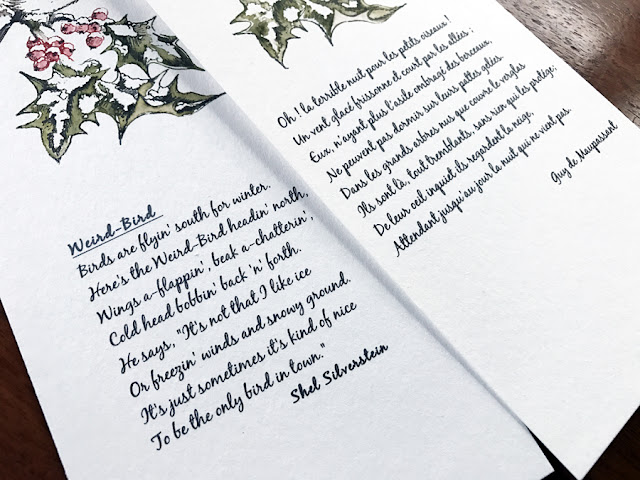 Weird-Bird
Birds are flyin' south for winter.
Here's the Weird-Bird headin' north,
Wings a-flappin', beak a-chatterin',
Cold head bobbin' back 'n' forth.
He says, "It's not that I like ice
Or freezin' winds and snowy ground.
It's just sometimes it's kind of nice
To be the only bird in town."
Shel Silverstein
Oh! la terrible nuit pour les petits oiseaux !
Un vent glacé frissonne et court par les allées ;
Eux, n'ayant plus l'asile ombragé des berceaux,
Ne peuvent pas dormir sur leurs pattes gelées.
Dans les grands arbres nus que couvre le verglas
Ils sont là, tout tremblants, sans rien qui les protège;
De leur oeil inquiet ils regardent la neige,
Attendant jusqu'au jour la nuit qui ne vient pas.
Guy de Maupassant